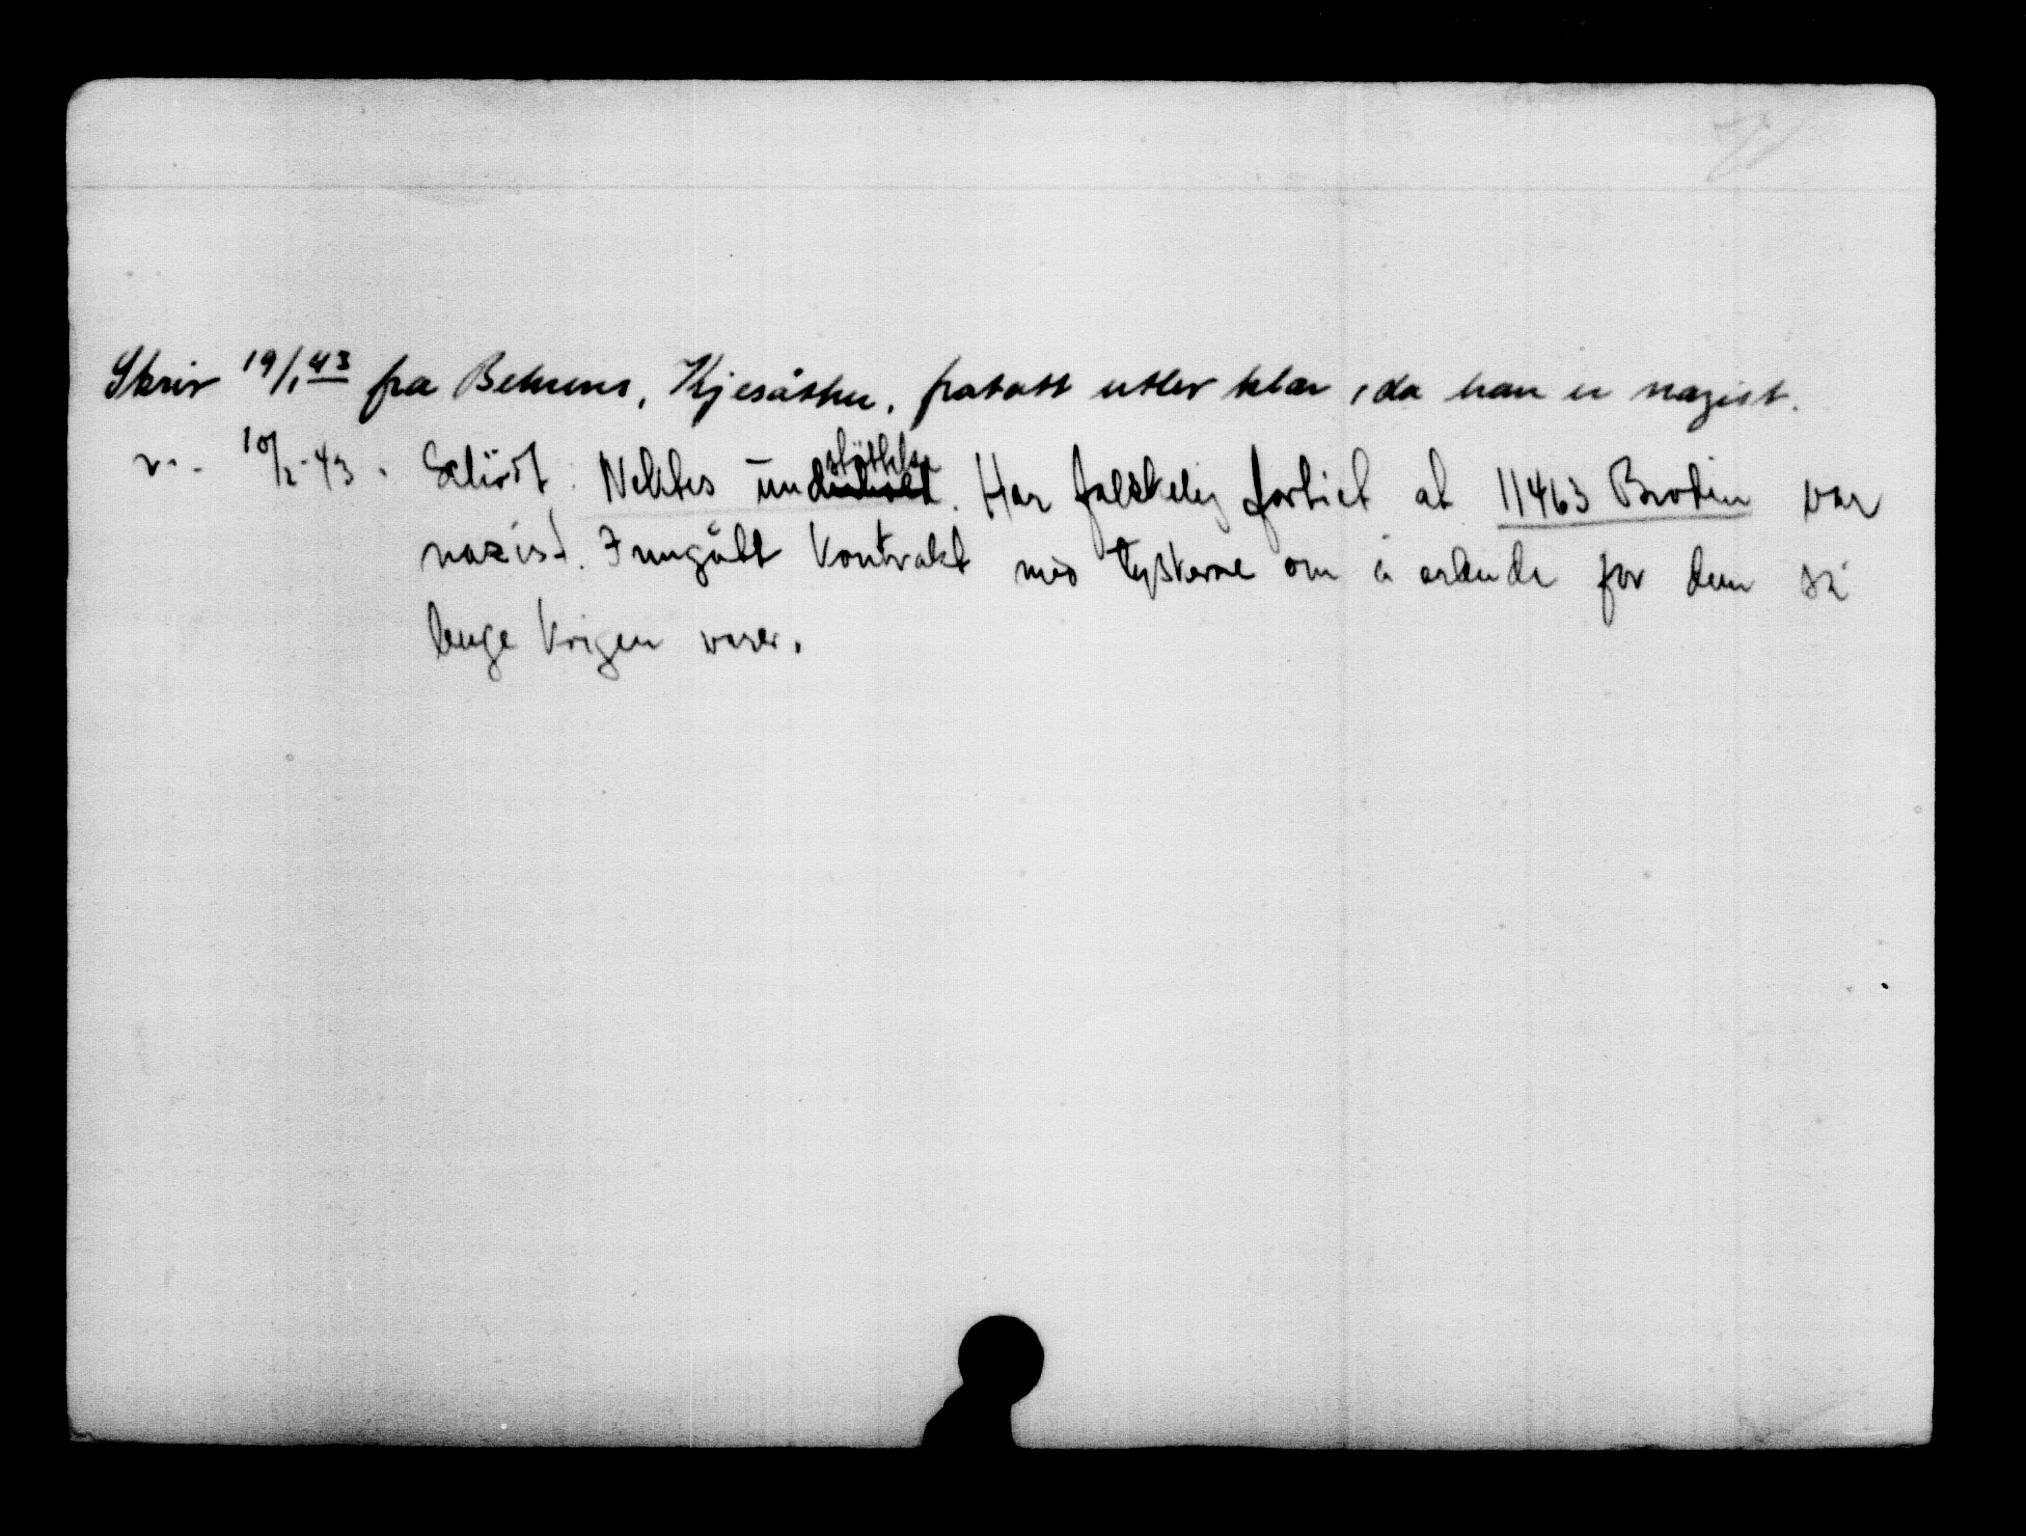 Skriv 19/1 43 fra Behrens, Kjesäter, fratatt utler klær, da han er nazist.
v.. 10/2-43. Nektes understöttelse. Har falskelig fortiet at 11463 Brodin var
nazist. Inngått kontrakt med tyskerne om å arbeide for dem så
lenge krigen varer.